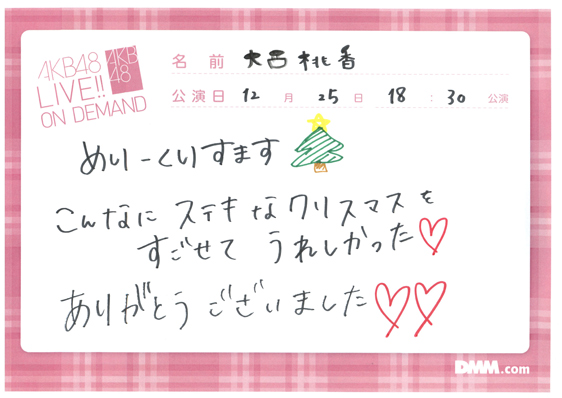 AKB48
LIVE!!
ON DEMAND
AKB
48
名前 大西桃香
公演日 12月25日 18:30 公演
めりーくりすます
こんなに ステキなクリスマスを
すごせて うれしかった♡
ありがとうございました♡♡
DMM.com